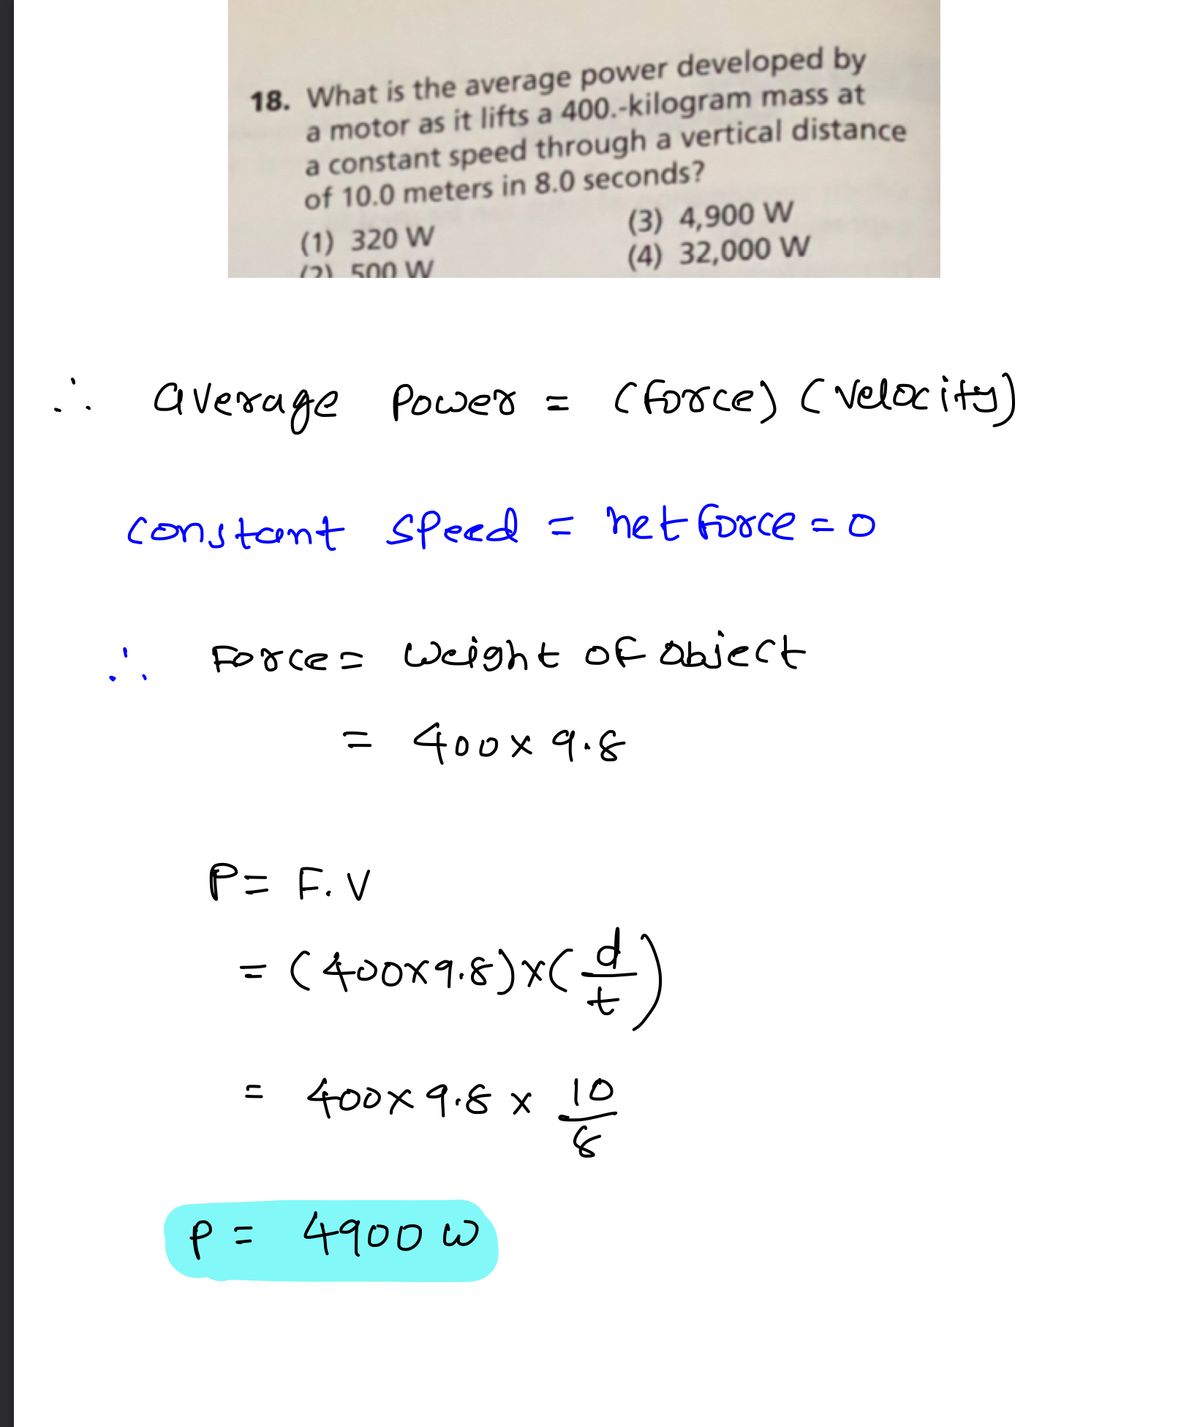 18. What is the average power developed by
a motor as it lifts a 400.-kilogram mass at
a constant speed through a vertical distance
of 10.0 meters in 8.0 seconds?
(1) 320 W (3) 4,900 W
(2) 500 W (4) 32,000 W
∴ average Power = (force) (velocity)
constant speed = net force = 0
∴ Force = weight of object
= 400 x 9.8
P = F. V
= (400x9.8)x(d/t)
= 400x 9.8 x 10/8
P = 4900 W